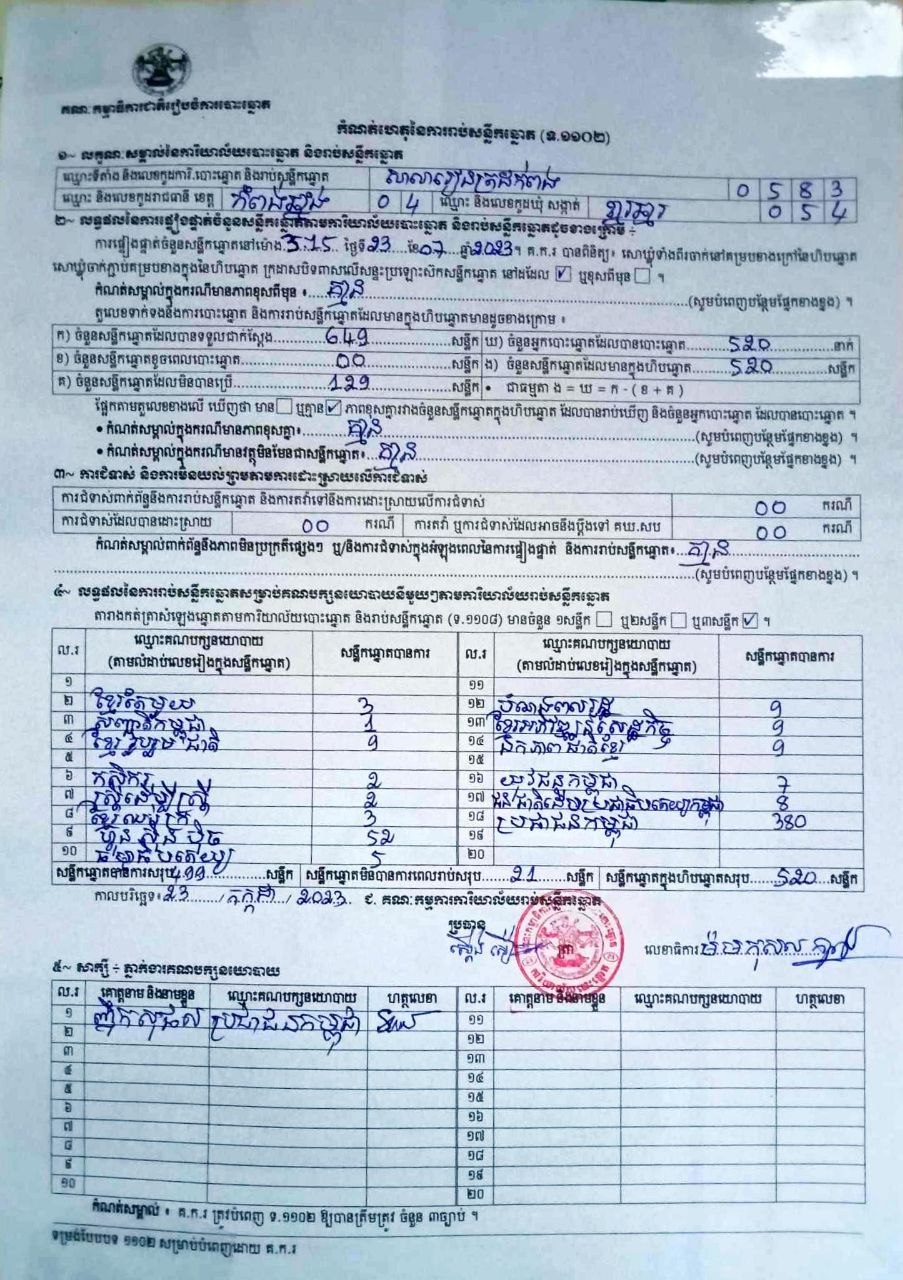 គណៈកម្មាធិការជាតិរៀបចំការបោះឆ្នោត
កំណត់ហេតុនៃការរាប់សន្លឹកឆ្នោត (ទ.១១០២)
១~ លក្ខណៈសម្គាល់នៃការិយាល័យបោះឆ្នោត និងរាប់សន្លឹកឆ្នោត
ឈ្មោះទីតាំង និងលេខកូដការិ.បោះឆ្នោត និងរាប់សន្លឹកឆ្នោត សាលារៀនត្រពាំង 0 5 8 3
ឈ្មោះ និងលេខកូដរាជធានី ខេត្ត កំពង់ឆ្នាំង 0 4 ឈ្មោះ និងលេខកូដឃុំ សង្កាត់ 0 5 4
២~ លទ្ធផលនៃការផ្ទៀងផ្ទាត់ចំនួនសន្លឹកឆ្នោតតាមការិយាល័យបោះឆ្នោត និងរាប់សន្លឹកឆ្នោតដូចខាងក្រោម ÷
ការផ្ទៀងផ្ទាត់ចំនួនសន្លឹកឆ្នោតនៅម៉ោង 3:15 ថ្ងៃទី 23 ខែ 07 ឆ្នាំ 2023។ គ.ក.រ បានពិនិត្យ៖ សោឃ្លុំទាំងពីរចាក់នៅគម្របខាងក្រៅនៃហិបឆ្នោត
សោឃ្លុំចាក់ភ្ជាប់គម្របខាងក្នុងនៃហិបឆ្នោត ក្រដាសបិទពាសលើសន្ទះប្រឡោះសិកសន្លឹកឆ្នោត នៅដដែល ☑ ឬខុសពីមុន ☐ ។
កំណត់សម្គាល់ក្នុងករណីមានភាពខុសពីមុន ៖ គ្មាន (សូមបំពេញបន្ថែមផ្នែកខាងខ្នង) ។
តួលេខទាក់ទងនឹងការបោះឆ្នោត និងការរាប់សន្លឹកឆ្នោតដែលមានក្នុងហិបឆ្នោតមានដូចខាងក្រោម ៖
ក) ចំនួនសន្លឹកឆ្នោតដែលបានទទួលជាក់ស្តែង 649 សន្លឹក ឃ) ចំនួនអ្នកបោះឆ្នោតដែលបានបោះឆ្នោត 520 នាក់
ខ) ចំនួនសន្លឹកឆ្នោតខូចពេលបោះឆ្នោត 00 សន្លឹក ង) ចំនួនសន្លឹកឆ្នោតដែលមានក្នុងហិបឆ្នោត 520 សន្លឹក
គ) ចំនួនសន្លឹកឆ្នោតដែលមិនបានប្រើ 129 សន្លឹក • ជាធម្មតា ង = ឃ = ក - ( ខ + គ )
ផ្អែកតាមតួលេខខាងលើ ឃើញថា មាន ☐ ឬគ្មាន ☑ ភាពខុសគ្នារវាងចំនួនសន្លឹកឆ្នោតក្នុងហិបឆ្នោត ដែលបានរាប់ឃើញ និងចំនួនអ្នកបោះឆ្នោត ដែលបានបោះឆ្នោត ។
• កំណត់សម្គាល់ក្នុងករណីមានភាពខុសគ្នា៖ គ្មាន (សូមបំពេញបន្ថែមផ្នែកខាងខ្នង) ។
• កំណត់សម្គាល់ក្នុងករណីមានវត្ថុមិនមែនជាសន្លឹកឆ្នោត៖ គ្មាន (សូមបំពេញបន្ថែមផ្នែកខាងខ្នង) ។
៣~ ការជំទាស់ និងការមិនយល់ព្រមតាមការដោះស្រាយលើការជំទាស់
ការជំទាស់ពាក់ព័ន្ធនឹងការរាប់សន្លឹកឆ្នោត និងការតវ៉ាទៅនឹងការដោះស្រាយលើការជំទាស់ 00 ករណី
ការជំទាស់ដែលបានដោះស្រាយ 00 ករណី ការតវ៉ា ឬការជំទាស់ដែលអាចនឹងប្តឹងទៅ គឃ.សប 00 ករណី
កំណត់សម្គាល់ពាក់ព័ន្ធនឹងភាពមិនប្រក្រតីផ្សេងៗ ឬ/និងការជំទាស់ក្នុងអំឡុងពេលនៃការផ្ទៀងផ្ទាត់ និងការរាប់សន្លឹកឆ្នោត៖ គ្មាន
(សូមបំពេញបន្ថែមផ្នែកខាងខ្នង) ។
៤~ លទ្ធផលនៃការរាប់សន្លឹកឆ្នោតសម្រាប់គណបក្សនយោបាយនីមួយៗតាមការិយាល័យរាប់សន្លឹកឆ្នោត
តារាងកត់ត្រាសំឡេងឆ្នោតតាមការិយាល័យបោះឆ្នោត និងរាប់សន្លឹកឆ្នោត (ទ.១១០៨) មានចំនួន ១សន្លឹក ☐ ឬ២សន្លឹក ☐ ឬ៣សន្លឹក ☑ ។
ល.រ ឈ្មោះគណបក្សនយោបាយ (តាមលំដាប់លេខរៀងក្នុងសន្លឹកឆ្នោត) សន្លឹកឆ្នោតបានការ ល.រ ឈ្មោះគណបក្សនយោបាយ (តាមលំដាប់លេខរៀងក្នុងសន្លឹកឆ្នោត) សន្លឹកឆ្នោតបានការ
១ ១១
២ ខ្មែរតែមួយ 3 ១២ បំណងពលរដ្ឋ 9
៣ សញ្ជាតិកម្ពុជា 1 ១៣ ខ្មែរអភិវឌ្ឍន៍សេដ្ឋកិច្ច 9
៤ ខ្មែររួបរួមជាតិ 9 ១៤ ឯកភាពជាតិខ្មែរ 9
៥ ១៥
៦ កសិករ 2 ១៦ យុវជនកម្ពុជា 7
៧ ស្ត្រីដើម្បីស្ត្រី 2 ១៧ ជនជាតិដើមប្រជាធិបតេយ្យកម្ពុជា 8
៨ ខ្មែរឈប់ក្រ 3 ១៨ ប្រជាជនកម្ពុជា 380
៩ ហ៊្វុនស៊ិនប៉ិច 52 ១៩
១០ ធម្មាធិបតេយ្យ 5 ២០
សន្លឹកឆ្នោតបានការសរុប 499 សន្លឹក សន្លឹកឆ្នោតមិនបានការពេលរាប់សរុប 21 សន្លឹក សន្លឹកឆ្នោតក្នុងហិបឆ្នោតសរុប 520 សន្លឹក
កាលបរិច្ឆេទ៖ 23 / កក្កដា / 2023 ជ. គណៈកម្មការការិយាល័យរាប់សន្លឹកឆ្នោត
ប្រធាន
លេខាធិការ
៥~ សាក្សី ÷ ភ្នាក់ងារគណបក្សនយោបាយ
ល.រ គោត្តនាម និងនាមខ្លួន ឈ្មោះគណបក្សនយោបាយ ហត្ថលេខា ល.រ គោត្តនាម និងនាមខ្លួន ឈ្មោះគណបក្សនយោបាយ ហត្ថលេខា
១ ប្រជាជនកម្ពុជា ១១
២ ១២
៣ ១៣
៤ ១៤
៥ ១៥
៦ ១៦
៧ ១៧
៨ ១៨
៩ ១៩
១០ ២០
កំណត់សម្គាល់ ៖ គ.ក.រ ត្រូវបំពេញ ទ.១១០២ ឱ្យបានត្រឹមត្រូវ ចំនួន ៣ច្បាប់ ។
ទម្រង់បែបបទ ១១០២ សម្រាប់បំពេញដោយ គ.ក.រ